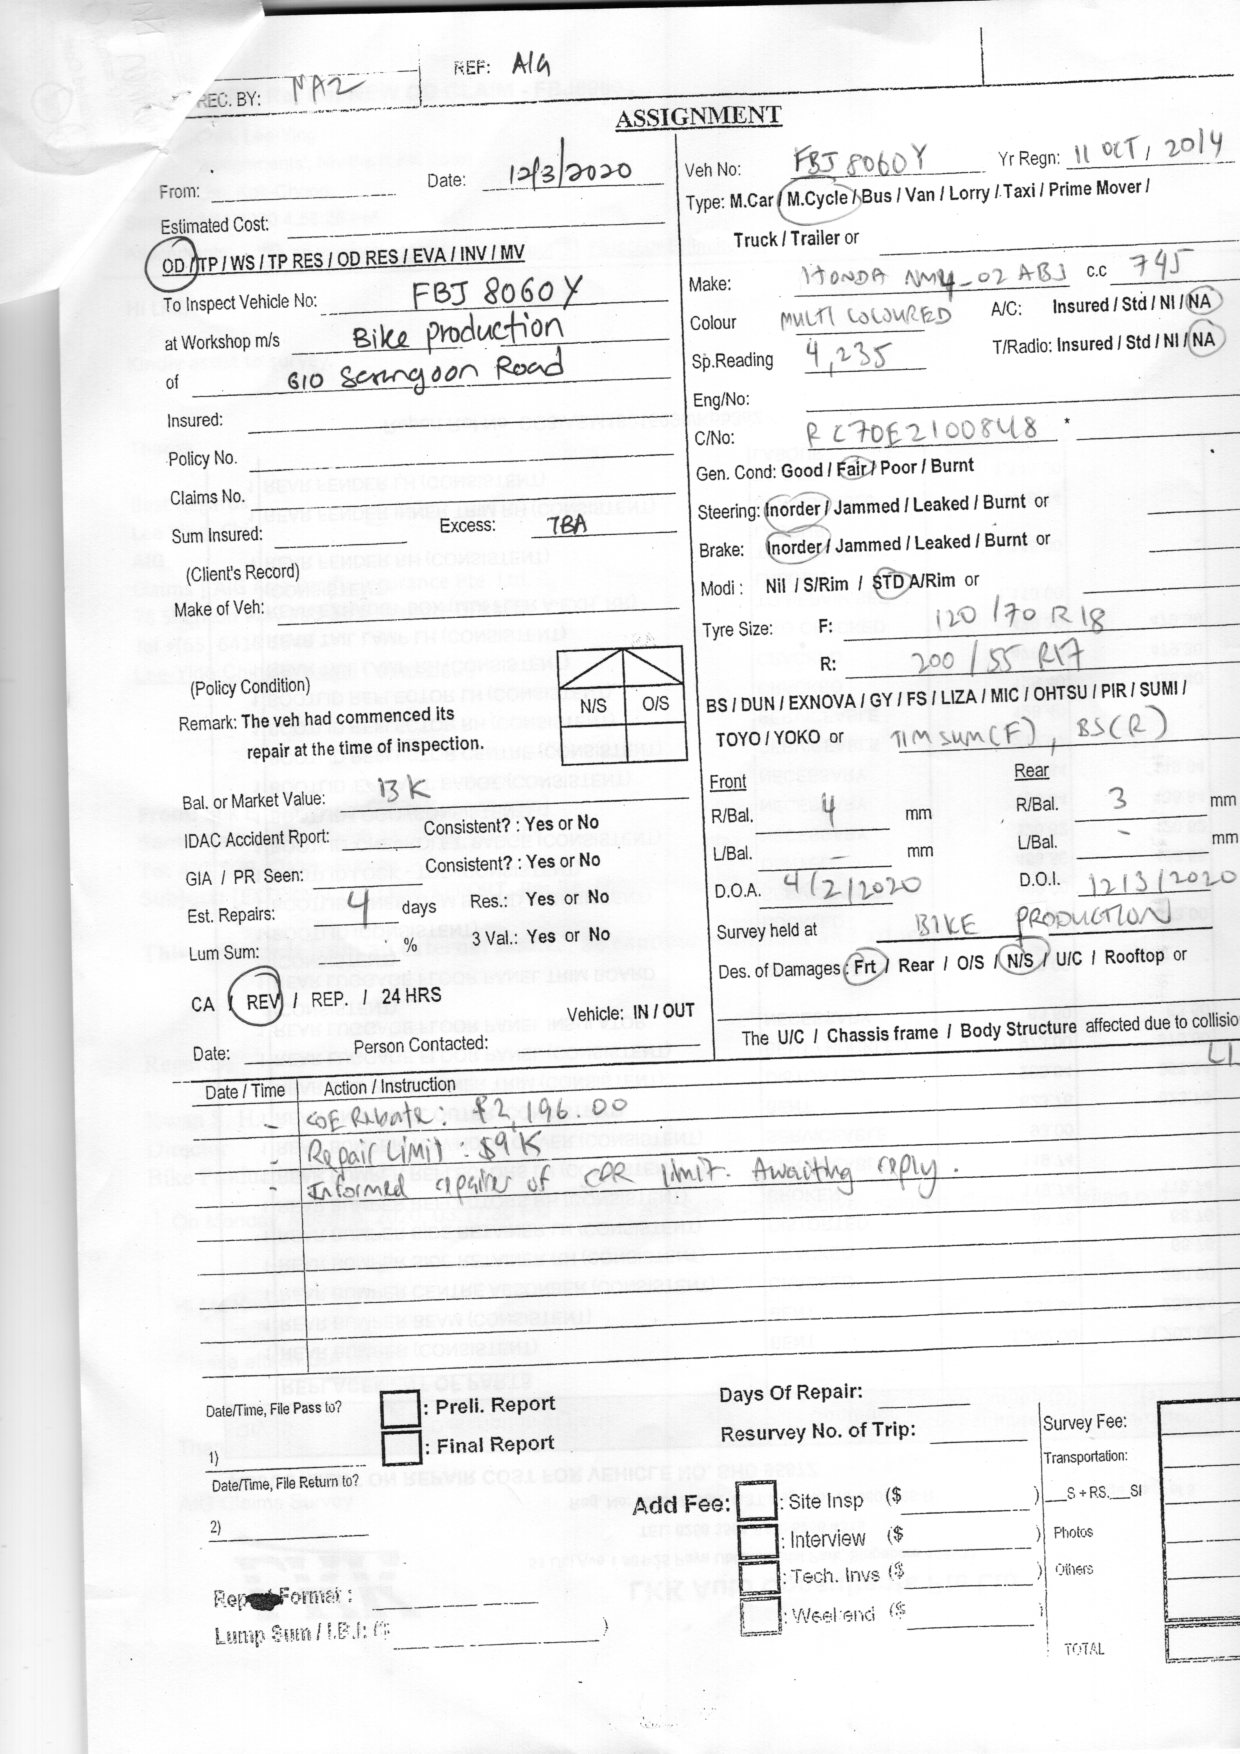 REC. BY: NA2
REF: AIG
ASSIGNMENT
From:
Date: 12/3/2020
Estimated Cost:
OD / TP / WS / TP RES / OD RES / EVA / INV / MV
To Inspect Vehicle No: FBJ 8060Y
at Workshop m/s Bike Production
of 610 Serangoon Road
Insured:
Policy No.
Claims No.
Sum Insured:
Excess: TBA
(Client's Record)
Make of Veh:
(Policy Condition)
N/S O/S
Remark: The veh had commenced its
repair at the time of inspection.
Bal. or Market Value: 13K
IDAC Accident Rport: Consistent? : Yes or No
GIA / PR Seen: Consistent? : Yes or No
Est. Repairs: 4 days Res.: Yes or No
Lum Sum: % 3 Val.: Yes or No
CA / REV / REP. / 24 HRS
Vehicle: IN / OUT
Date: Person Contacted:
Veh No: FBJ 8060Y Yr Regn: 11 OCT, 2014
Type: M.Car / M.Cycle / Bus / Van / Lorry / Taxi / Prime Mover /
Truck / Trailer or
Make: HONDA NM4-02 ABJ c.c 745
Colour MULTI COLOURED A/C: Insured / Std / NI / NA
Sp.Reading 4,235 T/Radio: Insured / Std / NI / NA
Eng/No:
C/No: RC70E2100848 *
Gen. Cond: Good / Fair / Poor / Burnt
Steering: Inorder / Jammed / Leaked / Burnt or
Brake: Inorder / Jammed / Leaked / Burnt or
Modi : Nil / S/Rim / STD A/Rim or
Tyre Size: F: 120 /70 R 18
R: 200 / 55 R17
BS / DUN / EXNOVA / GY / FS / LIZA / MIC / OHTSU / PIR / SUMI /
TOYO / YOKO or TIMSUM(F), BS(R)
Front Rear
R/Bal. 4 mm R/Bal. 3 mm
L/Bal. - mm L/Bal. - mm
D.O.A. 4/2/2020 D.O.I. 12/3/2020
Survey held at BIKE PRODUCTION
Des. of Damages : Frt / Rear / O/S / N/S / U/C / Rooftop or
The U/C / Chassis frame / Body Structure affected due to collisio
Date / Time Action / Instruction
- COE Rebate: $2,196.00
- Repair Limit: $9K
- Informed repairer of COR limit. Awaiting reply.
Date/Time, File Pass to?
: Preli. Report
: Final Report
1)
Date/Time, File Return to?
2)
Days Of Repair:
Resurvey No. of Trip:
Add Fee: : Site Insp ($ )
: Interview ($ )
: Tech. Invs ($ )
: Weekend ($ )
Survey Fee:
Transportation:
__S + RS.__SI
Photos
Others
TOTAL
Report Format :
Lump Sum / I.B.I: ($ )